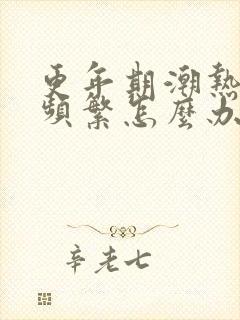 更年期潮熱
頻繁怎麼办
辛老七